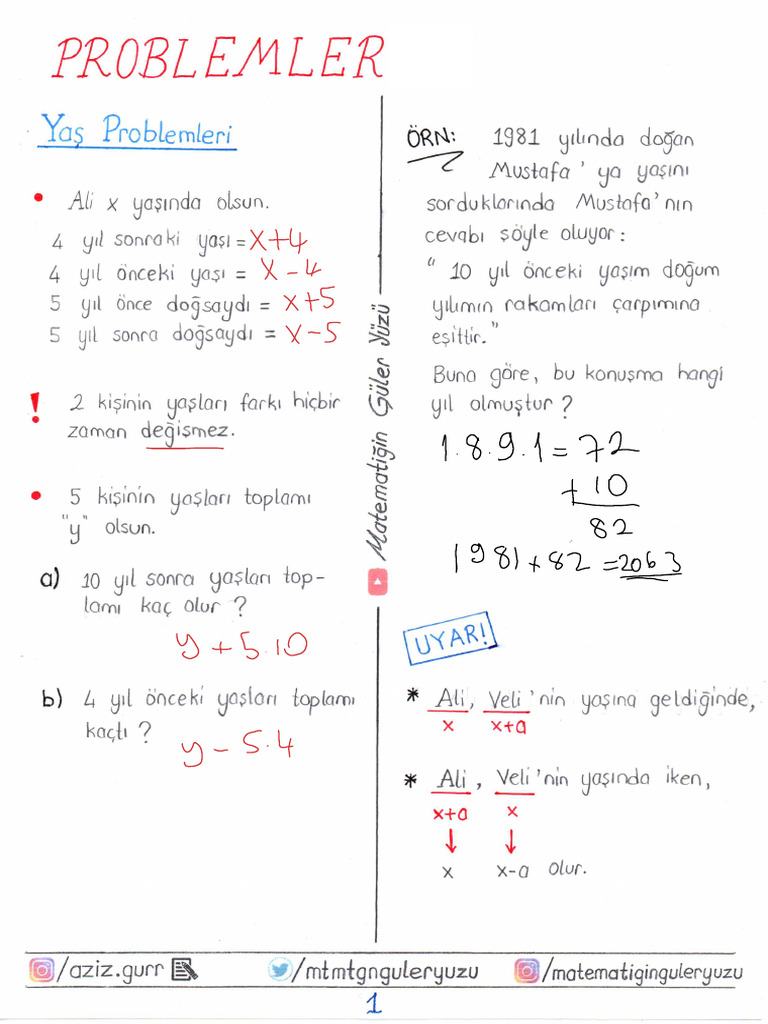 PROBLEMLER
Yaş Problemleri
• Ali x yaşında olsun.
4 yıl sonraki yaşı = x+4
4 yıl önceki yaşı = x-4
5 yıl önce doğsaydı = x+5
5 yıl sonra doğsaydı = x-5
! 2 kişinin yaşları farkı hiçbir
zaman değişmez.
• 5 kişinin yaşları toplamı
"y" olsun.
a) 10 yıl sonra yaşları top-
lamı kaç olur ?
y + 5.10
b) 4 yıl önceki yaşları toplamı
kaçtı ?
y - 5.4
Matematiğin Güler Yüzü
ÖRN: 1981 yılında doğan
Mustafa' ya yaşını
sorduklarında Mustafa'nın
cevabı şöyle oluyor :
" 10 yıl önceki yaşım doğum
yılımın rakamları çarpımına
eşittir."
Buna göre, bu konuşma hangi
yıl olmuştur ?
1.8.9.1 = 72
+ 10
82
1981 + 82 = 2063
UYARI!
* Ali, Veli'nin yaşına geldiğinde,
x x+a
* Ali, Veli'nin yaşında iken,
x+a x
↓ ↓
x x-a olur.
/aziz.gurr /mtmtgnguleryuzu /matematiginguleryuzu
1